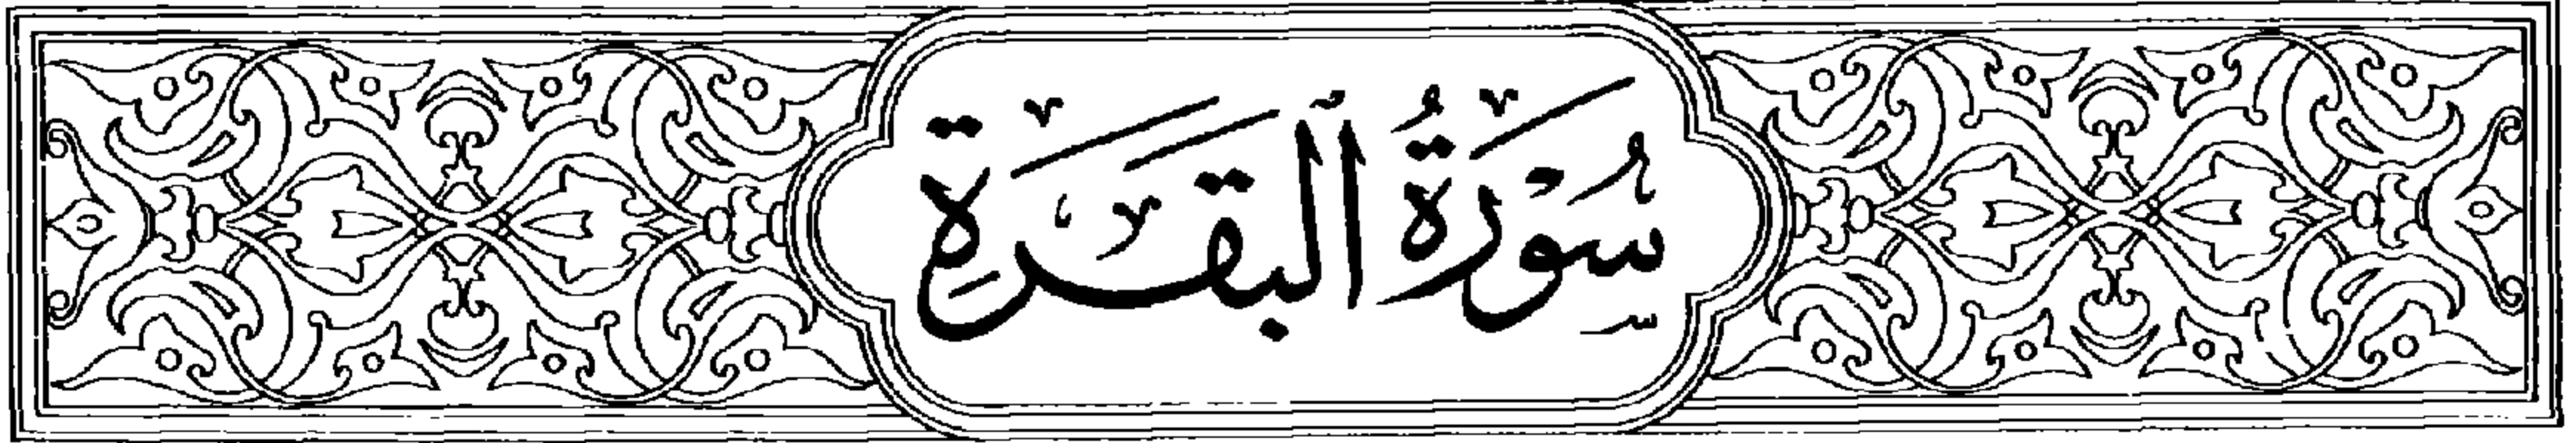 سُوْرَةُ ٱلْبَقَرَةِ